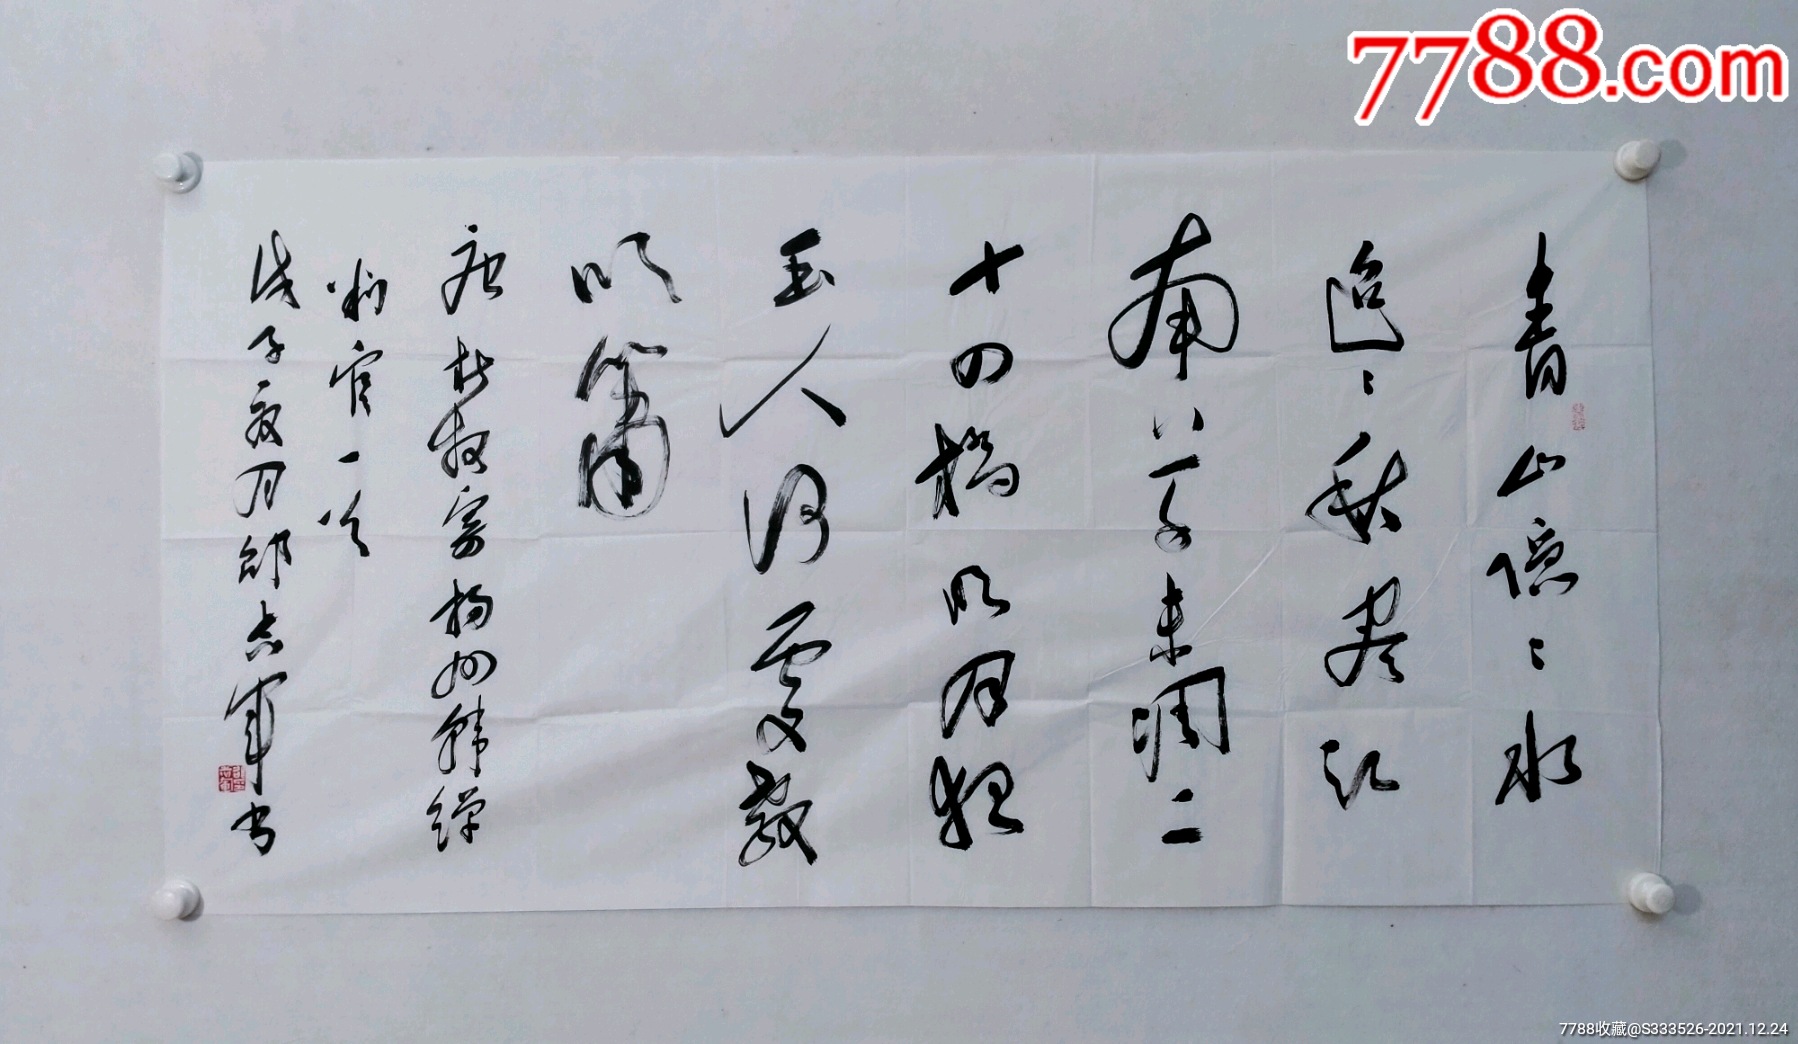 7788.com
青山隐々水
迢々秋尽江
南草未凋二
十四桥明月夜
玉人何处教
吹箫
唐杜牧寄扬州韩绰
判官一首
戊子夏月邵志军书
7788收藏@S333526-2021.12.24